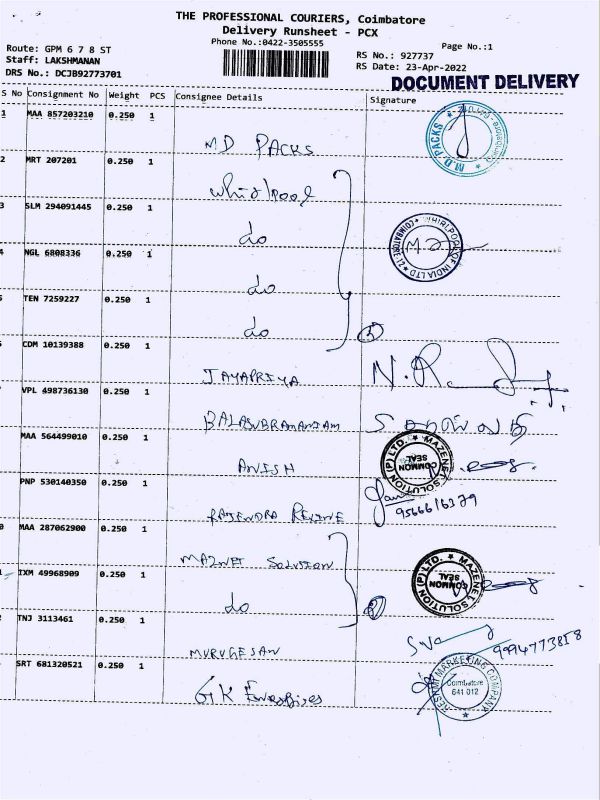 THE PROFESSIONAL COURIERS, Coimbatore
Delivery Runsheet - PCX
Phone No.:0422-3505555
Page No.:1
Route: GPM 6 7 8 ST
RS No.: 927737
Staff: LAKSHMANAN
RS Date: 23-Apr-2022
DRS No.: DCJB92773701
DOCUMENT DELIVERY
S No Consignment No Weight PCS Consignee Details Signature
1 MAA 857203210 0.250 1
MD PACKS
M.D. PACKS
2 MRT 207201 0.250 1
Whirlpool
3 SLM 294091445 0.250 1
do
WHIRLPOOL OF INDIA LTD COIMBATORE-12
NGL 6808336 0.250 1
do
TEN 7259227 0.250 1
do
4
CDM 10139388 0.250 1
JAYAPRIYA
N.R.
VPL 498736130 0.250 1
BALASUBRAMANIAM
MAA 564499010 0.250 1
ANISH
MAZENET SOLUTION (P) LTD.
COMMON SEAL
PNP 530140350 0.250 1
RAJENDRA
9566616379
0 MAA 287062900 0.250 1
MAZNET SOLUTION
IXM 49968909 0.250 1
do
2
MAZENET SOLUTION (P) LTD.
COMMON SEAL
2 TNJ 3113461 0.250 1
MURUGESAN
9994773818
SRT 681320521 0.250 1
GK Enterprises
MARKETING COMPANY
Coimbatore
641 012